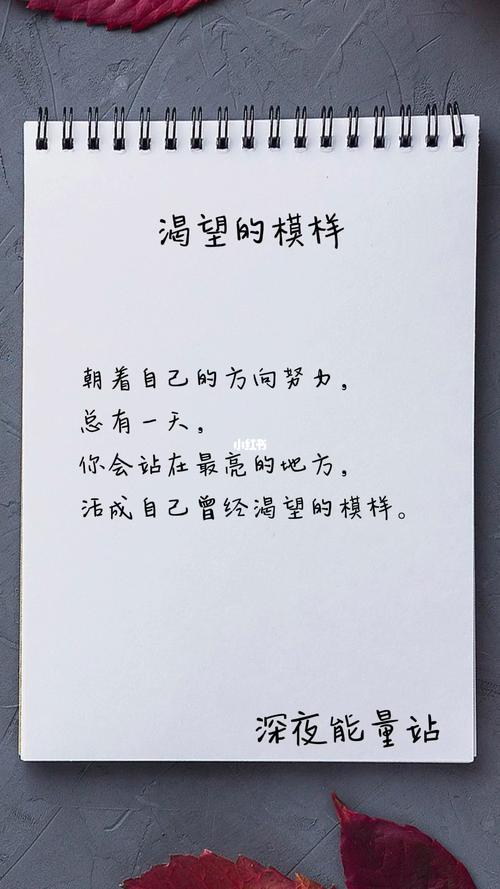 渴望的模样
朝着自己的方向努力，
总有一天，
小红书
你会站在最亮的地方，
活成自己曾经渴望的模样。
深夜能量站